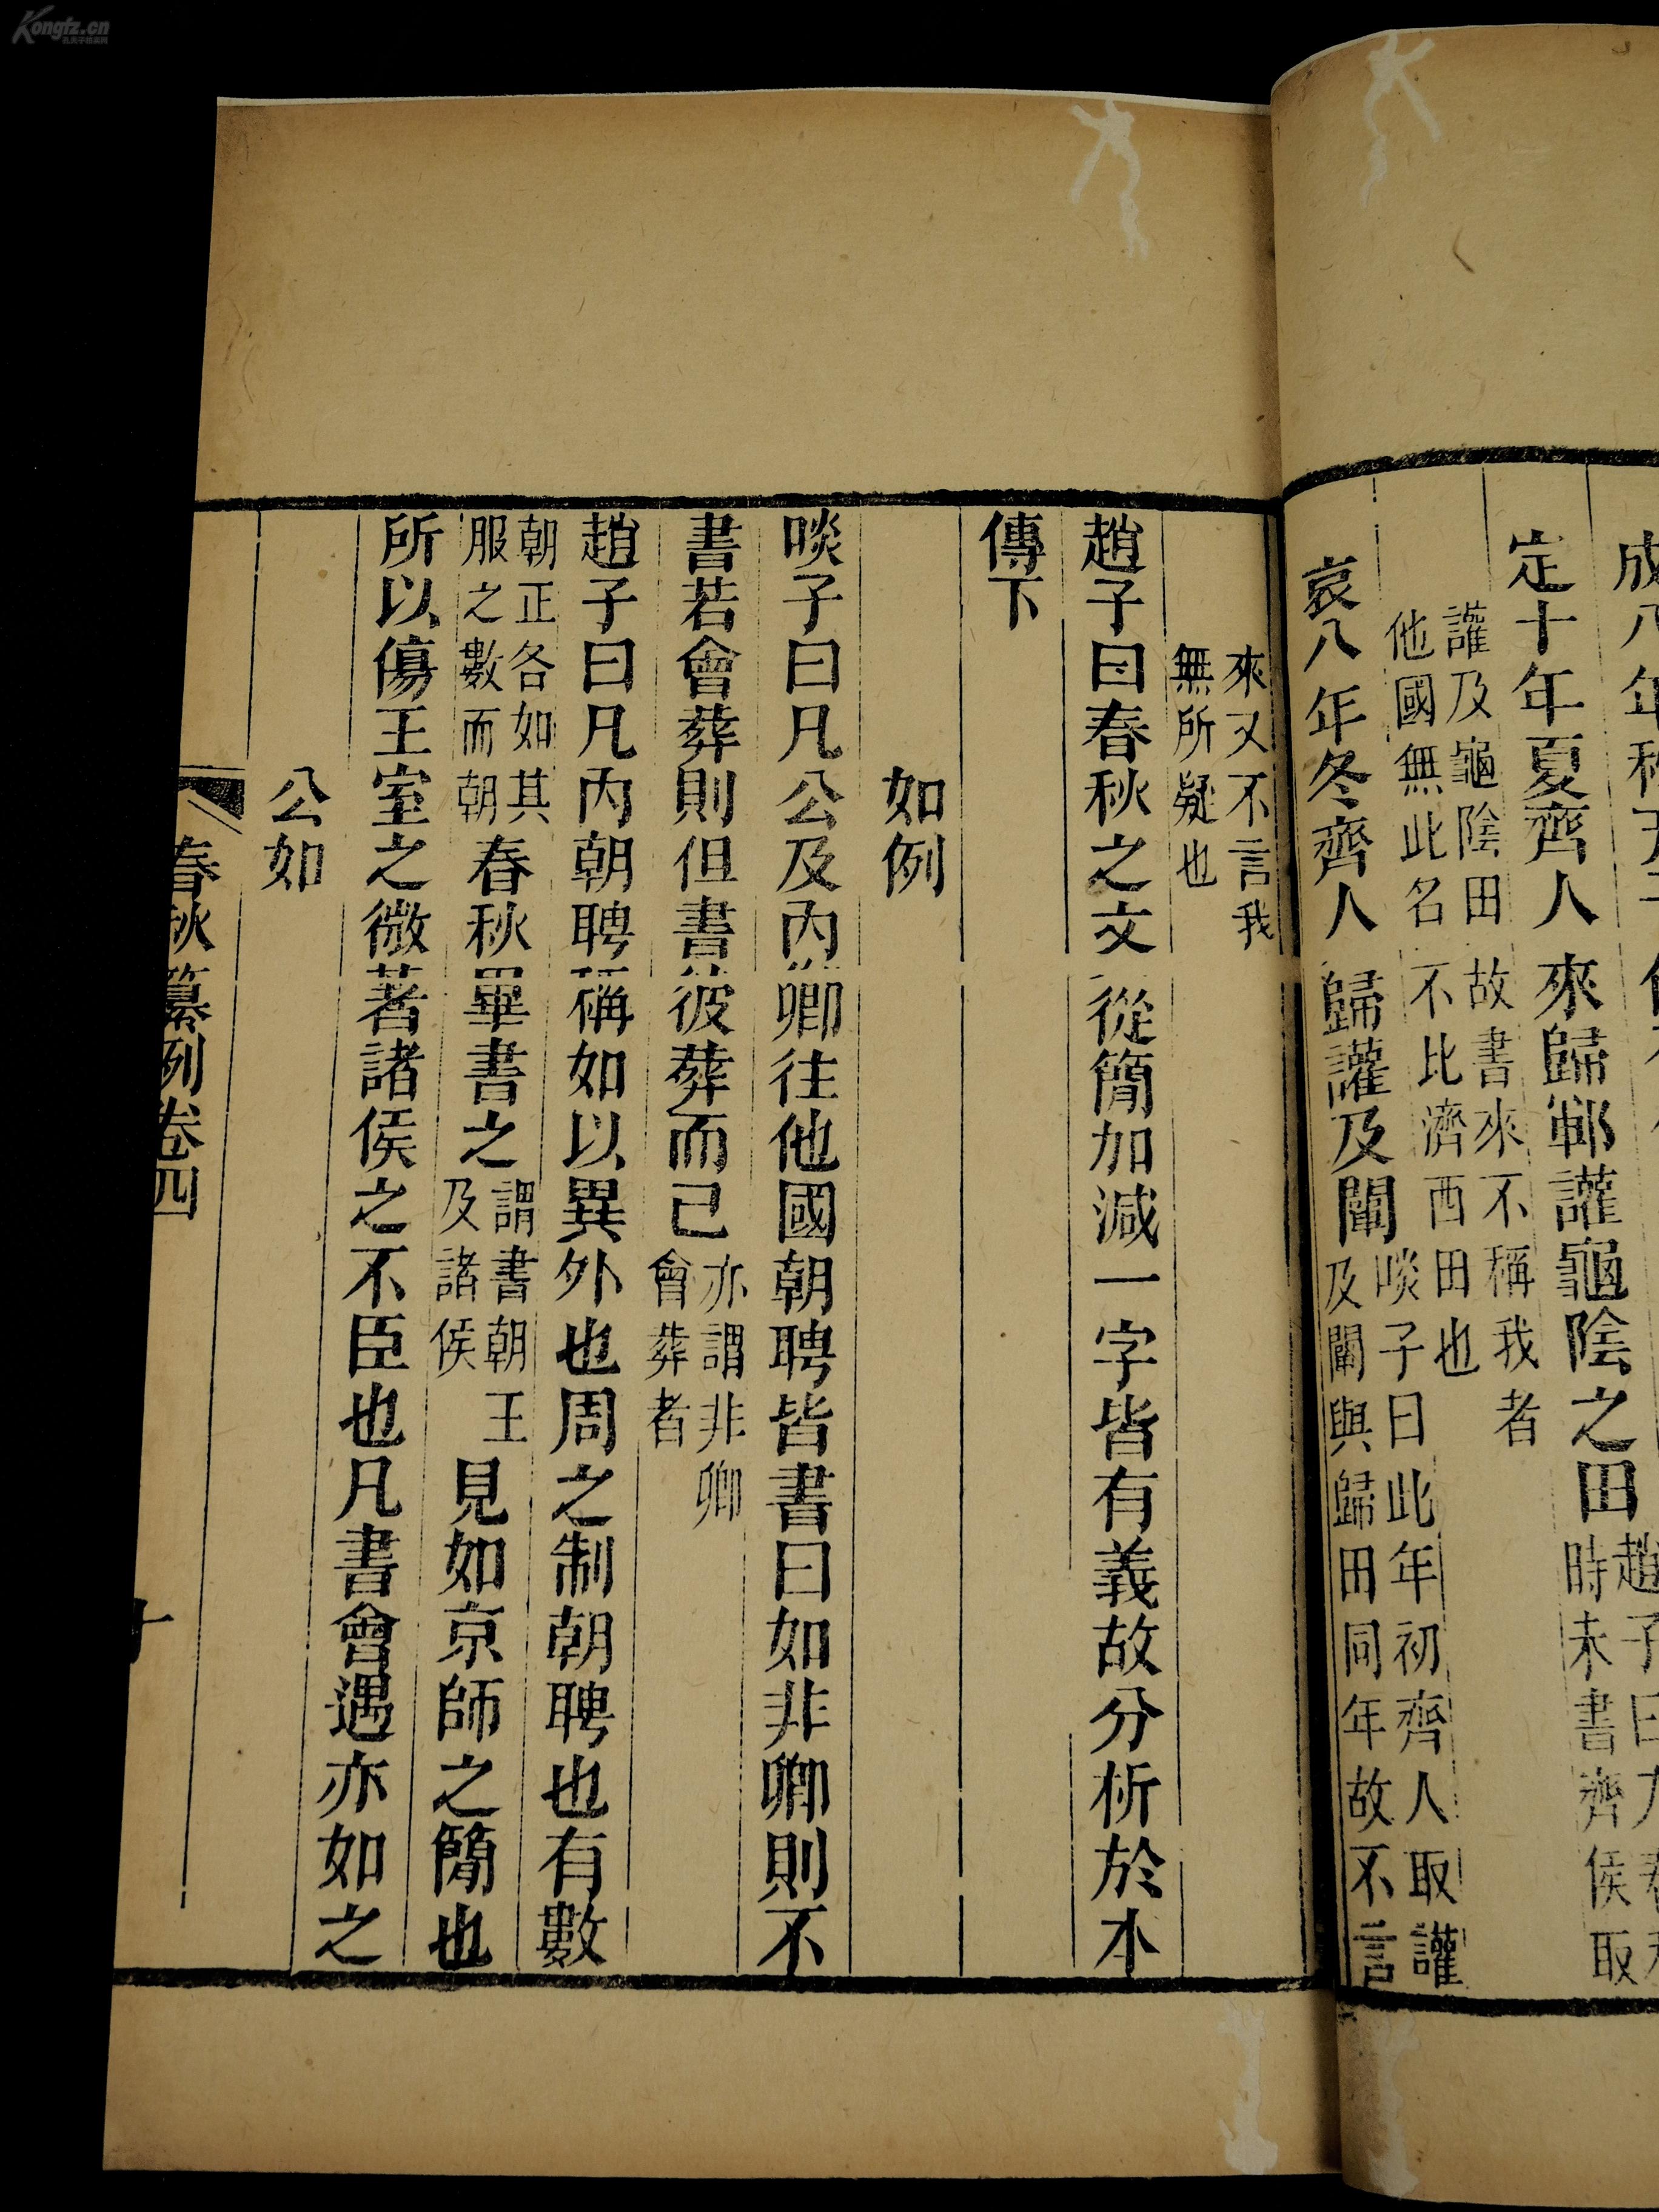 定十年夏齊人來歸鄆讙龜陰之田
讙及龜陰田故書來不稱我者
他國無此名不比濟西田也
哀八年冬齊人歸讙及闡啖子曰此年初齊人取讙
及闡與歸田同年故不言
來又不言我
無所疑也
趙子曰春秋之文從簡加減一字皆有義故分析於本
傳下
如例
啖子曰凡公及內卿往他國朝聘皆書曰如非卿則不
書若會葬則但書彼葬而已亦謂非卿
會葬者
趙子曰凡內朝聘稱如以異外也周之制朝聘也有數
朝正各如其
服之數而朝
春秋畢書之謂書朝王
及諸侯
見如京師之簡也
所以傷王室之微著諸侯之不臣也凡書會遇亦如之
公如
春秋纂例卷四
十
Kongfz.cn